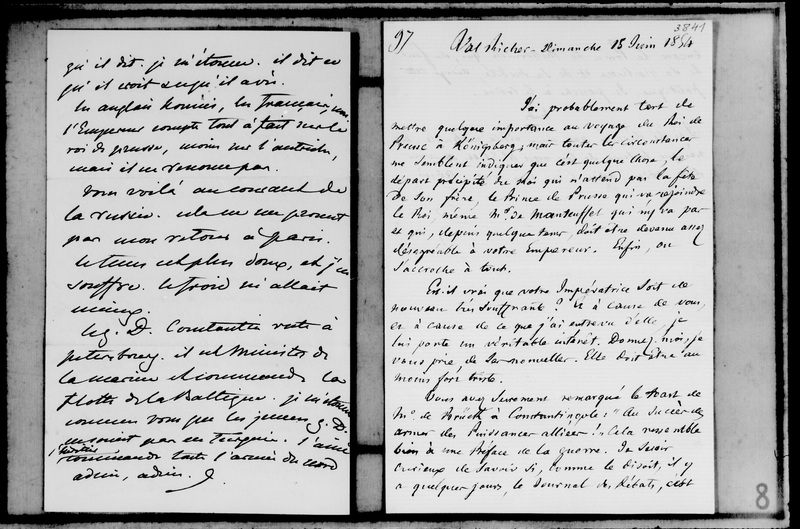 qu'il dit. je m'étonne. il dit ce
qu'il croit ou qu'il a vu.
les anglais honnis, les français, non
l'Empereur compte tout à fait sur le
roi de prusse, moins sur l'autriche,
mais il ne renonce pas.
vous voilà au courant de
la russie. cela ne me permet
pas mon retour à paris.
le tems est plus doux, et j'en
souffre. le froid m'allait
mieux.
le g. D. Constantin reste à
petersbourg. il est Ministre de
la marine et commande la
flotte de la Baltique.
commande toute l'armée du nord
adieu, adieu.
97
3841
Val Richer - Dimanche 18 Juin 1854
J'ai probablement tort de
mettre quelque importance au voyage du Roi de
Prusse à Königsberg ; mais toutes les circonstances
me semblent indiquer que c'est quelque chose ; le
départ précipité du Roi qui n'attend pas la fête
de son frère, le Prince de Prusse qui va rejoindre
le Roi, même Mr de Manteuffel qui n'y va pas
et qui, depuis quelque tems, doit être devenu assez
désagréable à votre Empereur. Enfin, on
s'accroche à tout.
Est-il vrai que votre Impératrice soit de
nouveau très souffrante ? Et à cause de vous,
et à cause de ce que j'ai entrevu d'elle, je
lui porte un véritable intérêt. Donnez-moi, je
vous prie de ses nouvelles. Elle doit être au
moins fort triste.
Vous avez surement remarqué le toast de
Mr de Brück à Constantinople : "Au succès des
armes des Puissances alliées !" Cela ressemble
bien à une Préface de la guerre. Je serois
curieux de savoir si, comme le disoit, il y
a quelques jours, le Journal des Débats, c'est
8